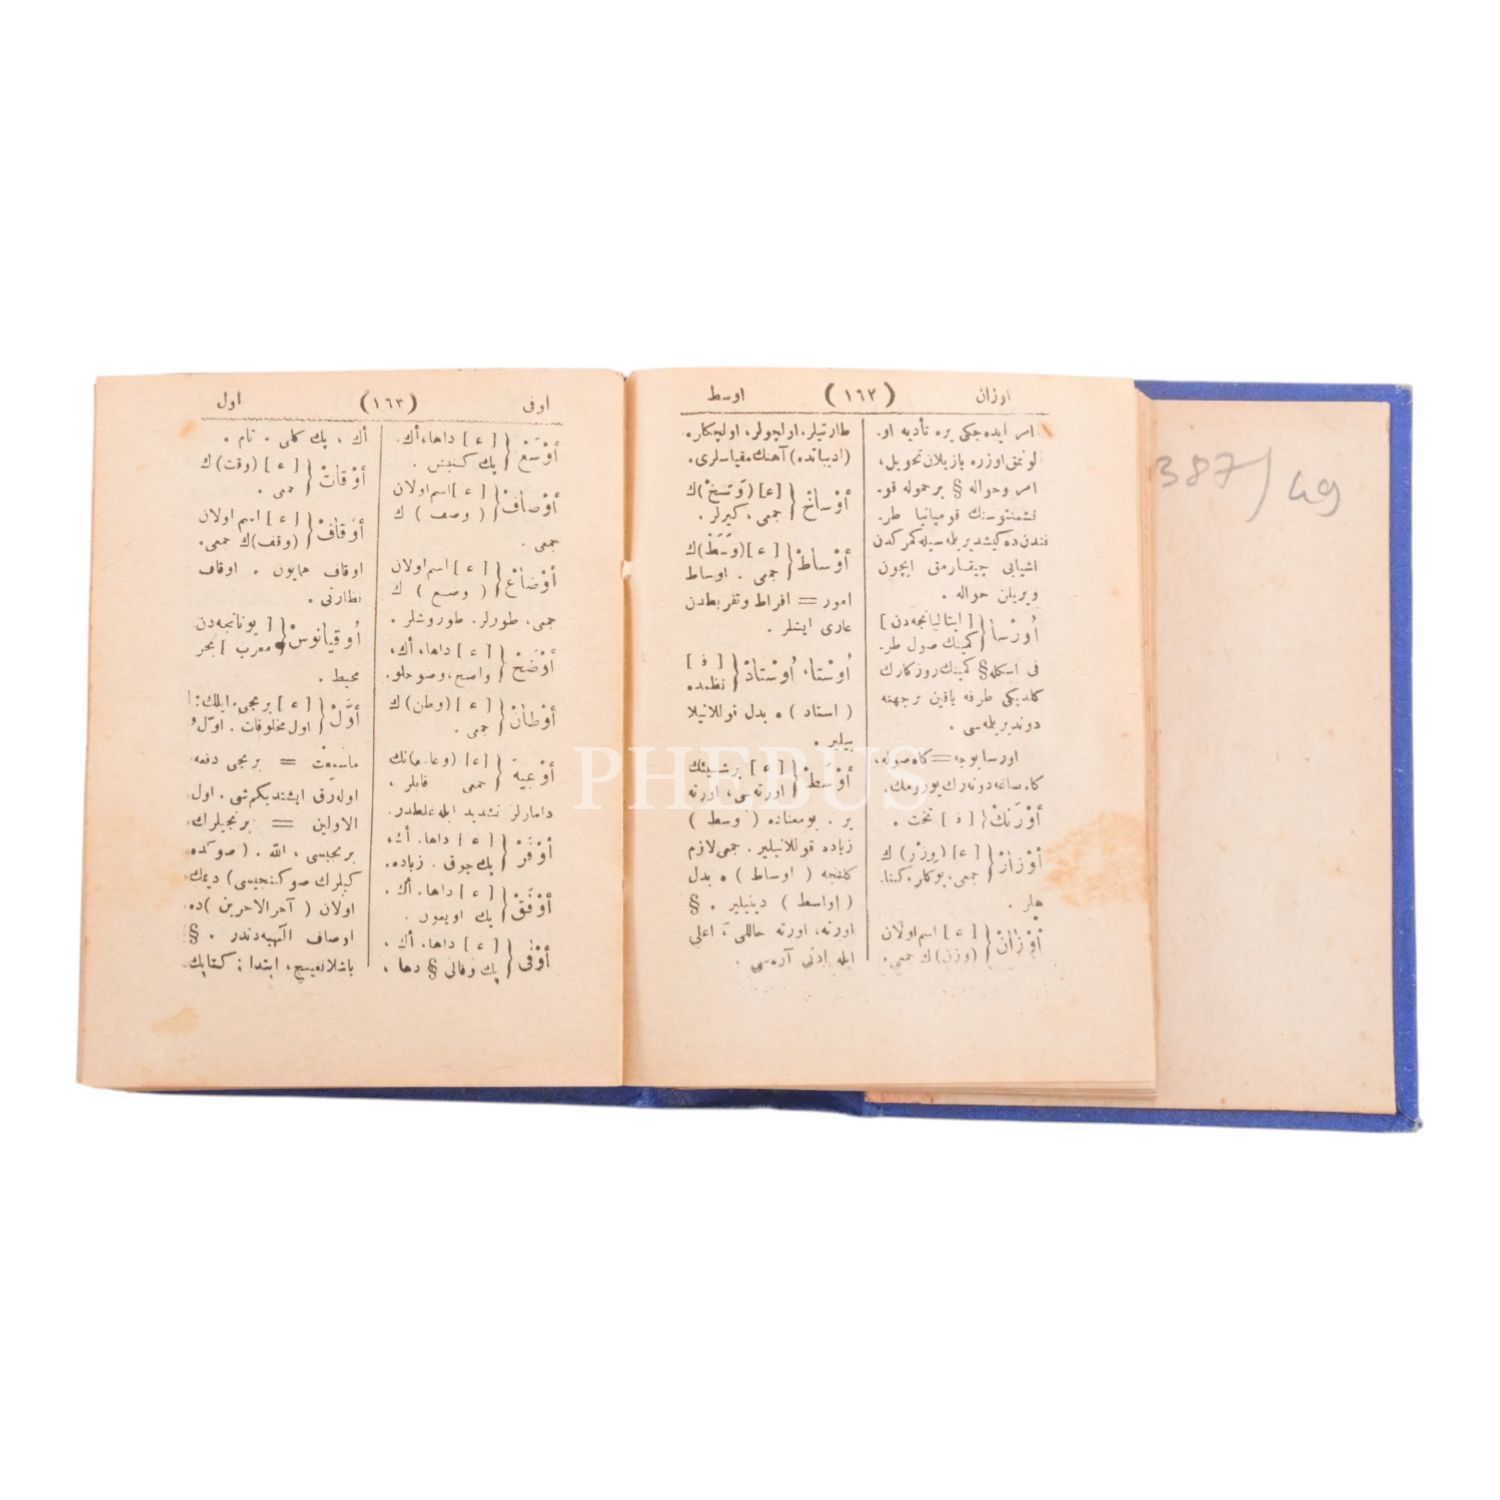 اوزان (١٦٢) اوسط
امر ايده‌جكى يره تأديه او.
لونمق اوزره يازيلان تحويل،
امر وحواله § بر حموله قو.
نشمنتوسنك قومپانيا طر.
فندن ده كيشديريلمه‌سيله كمركدن
اشيايى چيقارمق ايچون
ويريلن حواله .
اُورْسا { [ ايتاليانجه‌دن ]
كمينك صول طر.
فى اسكله § كمينك روزكارك
كلديكى طرفه ياقين بر جهته
دونديريلمه‌سى .
اورسا بوجه = كاه صوله،
كاه صاغه دونه‌رك يورومك.
اَوْرَنْكْ { [ ف ] تخت .
اَوْزارْ { [ع] (وِزْر) ك
جمعى، يوكلر، كنا.
هلر .
اَوْزانْ { [ع] اسم اولان
(وزن) ك جمعى.
طارتيلر. اولچولر، اولچكلر.
(ادبياتده) آهنك مقياسلرى.
اَوْساخْ { [ع] (وَسَخْ) ك
جمعى، كيرلر .
اَوْساطْ { [ع] (وَسَطْ) ك
جمعى . اوساط
امور = افراط وتفريطدن
عارى ايشلر .
اُوسْتا، اُوسْتادْ { [ ف ]
نظمده
( استاد ) ه بدل قوللانيلا
بيلير .
اَوْسَطْ { [ع] بر شيئك
اورته‌سى، اورته
ير . بو معناده ( وسط )
زياده قوللانيلير. جمعى لازم
كلنجه ( اوساط ) ه بدل
( اواسط ) دينيلير . §
اورته، اورته حاللى ، اعلى
ايله ادنى آره‌سى .
اوفى (١٦٣) اول
اَوْسَعْ { [ع] داها، أك.
پك كنيش .
اَوْصافْ { [ع] اسم اولان
( وصف ) ك
جمعى .
اَوْضاعْ { [ع] اسم اولان
( وضع ) ك
جمعى، طورلر. طوروشلر .
اَوْضَحْ { [ع] داها، أك،
واضح، وضوحلو.
اَوْطانْ { [ع] (وطن) ك
جمعى .
اَوْعِيَه { [ع] (وعاء) نك
جمعى قابلر .
دامارلر تشديد ايله غلطدر.
اَوْفَرْ { [ع] داها. أك،
پك چوق . زياده.
اَوْفَقْ { [ع] داها. أك .
پك اويغون .
اَوْفى { [ع] داها. أك .
پك وفالى § دها .
أك ، پك كلى . تام .
اَوْقاتْ { [ع] (وقت) ك
جمعى .
اَوْقافْ { [ع] اسم اولان
(وقف) ك جمعى.
اوقاف همايون . اوقاف
نظارتى .
اُوقيانوسْ { [ يونانجه‌دن
معرب ] بحر
محيط .
اَوَّلْ { [ع] برنجى، ايلك:
اول مخلوقات . اوّل و
ماسمعت = برنجى دفعه
اوله‌رق ايشتديكم شى. اول
الاولين = برنجيلرك
برنجيسى ، الله . ( صوكده
كيلرك صوكنجيسى) ديمك
اولان ( آخر الاخرين ) ده
اوصاف الهيه‌دندر . §
باشلانغيچ، ابتدا : كتابك
387/49
PHEBUS